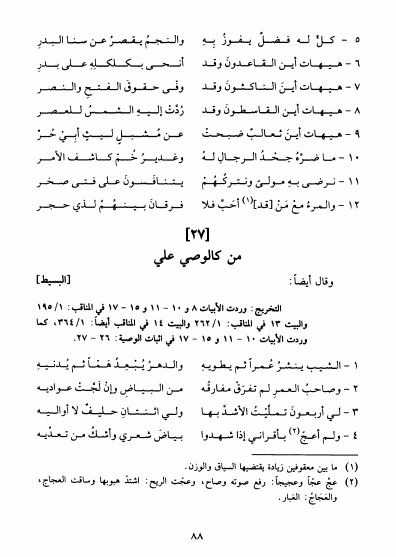 ٥ - كلٌّ له فضلٌ يفوزُ بِهِ والنجمُ يقصرُ عن سنا البدرِ
٦ - هيهات أينَ القاعدونَ وقد أنحى بكلكلِهِ على بدرِ
٧ - هيهات أينَ الناكثونَ وقد وفى حقوقَ الفتحِ والنصرِ
٨ - هيهات أينَ القاسطونَ وقد رُدَّتْ إليهِ الشمسُ للعصرِ
٩ - هيهات أينَ ثعالبٌ ضبحتْ عن مُشبلٍ ليثٍ أبيِّ حُرِّ
١٠ - ما ضرَّهُ جحدُ الرجالِ لهُ وغديرُ خُمّ كاشفُ الأمرِ
١١ - نرضى بهِ مولىً ونتركُهُمْ يتنافسونَ على فتى صخرِ
١٢ - والمرءُ معْ مَنْ [قد](١) أحَبَّ فلا فرقانَ بينهُمْ لذي حجرِ
[٢٧]
من كالوصي علي
وقال أيضاً: [البسيط]
التخريج: وردت الأبيات ٨ و ١٠ - ١١ و ١٥ - ١٧ في المناقب: ١/ ١٩٥
والبيت ١٣ في المناقب: ١/ ٢٦٢ والبيت ١٤ في المناقب أيضاً: ١/ ٣٦٤، كما
وردت الأبيات ١٠ - ١١ و ١٥ - ١٧ في اثبات الوصية: ٢٦ - ٢٧.
١ - الشيب ينشرُ عُمراً ثم يطويهِ والدهرُ يُبْعِدُ هَمّاً ثم يُدنيهِ
٢ - وصاحبُ العمرِ لم تفرَقْ مفارقُه من البياضِ وإنْ لَجَّتْ عواديهِ
٣ - لي أربعونَ تملّيْتُ الأشدَّ بها ولي اثنتانِ حليفٌ لا أواليهِ
٤ - ولم أعجَّ(٢) بأقراني إذا شهدوا بياضَ شعري وأشكُ من تعدّيه
(١) ما بين معقوفين زيادة يقتضيها السياق والوزن.
(٢) عجَّ عجّاً وعجيجاً: رفع صوته وصاح، وعجّت الريح: اشتدّ هبوبها وساقت العجاج،
والعَجَاجُ: الغبار.
٨٨